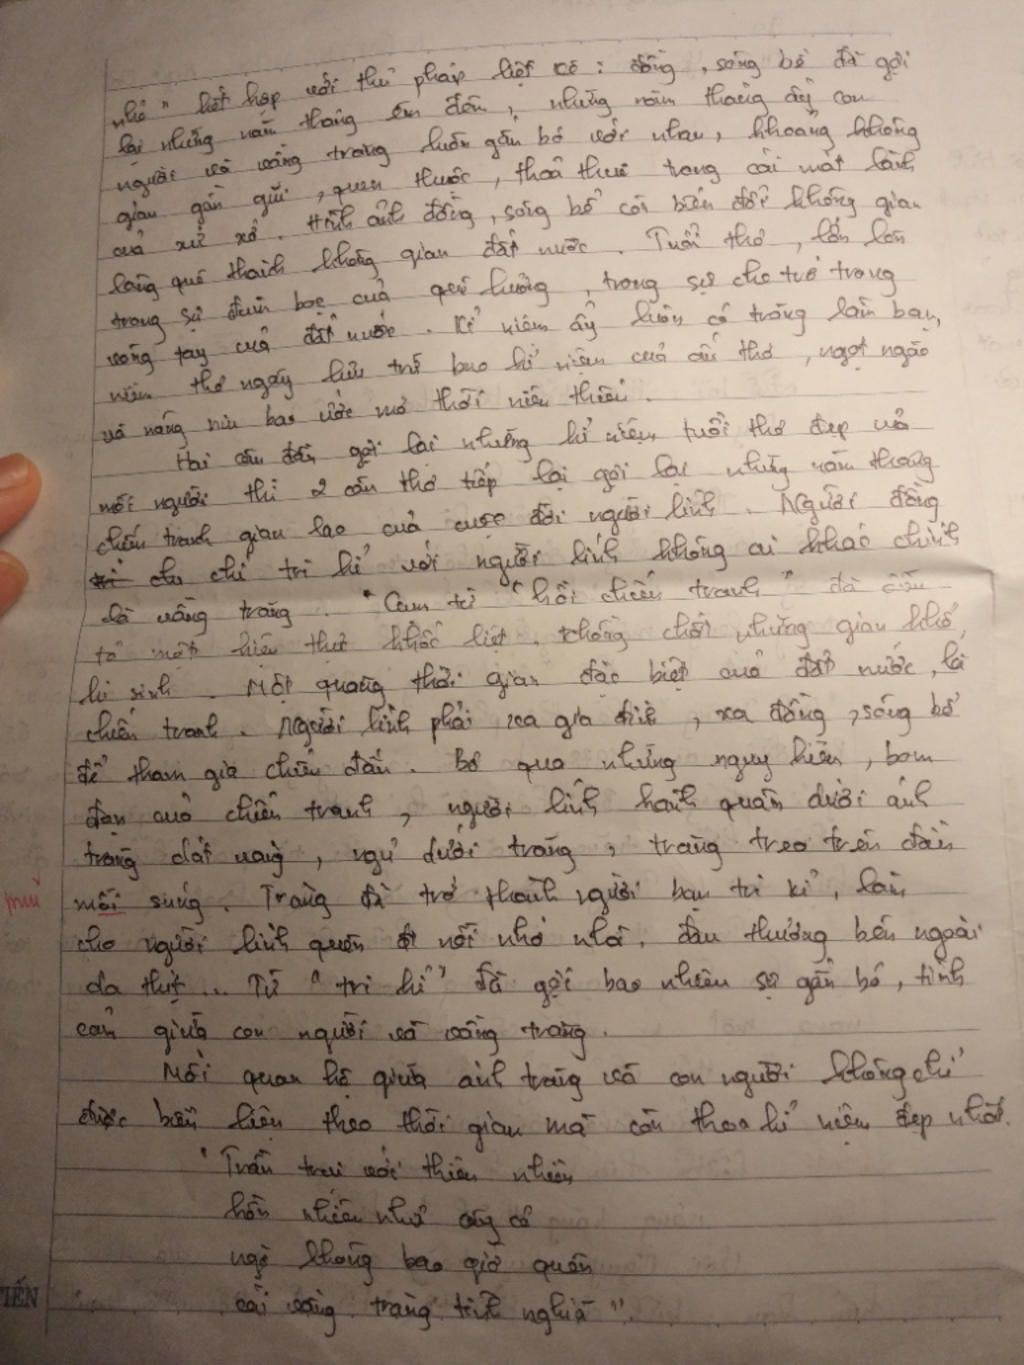 nhỏ" kết hợp với thủ pháp liệt kê : đồng, sông bể đã gợi
lại những năm tháng êm đềm, những năm tháng ấy con
người và vầng trăng luôn gắn bó với nhau, khoảng không
gian gần gũi, quen thuộc, thoả thuê trong cái mát lành
của xứ sở. Hình ảnh đồng, sông bể còn biến đổi không gian
làng quê thành không gian đất nước. Tuổi thơ, lớn lên
trong sự đùm bọc của quê hương, trong sự che trở trong
vòng tay của đất nước. Kỉ niệm ấy luôn có trăng làm bạn,
niềm thơ ngây lưu trữ bao kỉ niệm của ấu thơ, ngọt ngào
và nâng niu bao ước mơ thời niên thiếu.
Hai câu đầu gợi lại những kỉ niệm tuổi thơ đẹp của
mỗi người thì 2 câu thơ tiếp lại gợi lại những năm tháng
chiến tranh gian lao của cuộc đời người lính. Người đồng
chí tri kỉ với người lính không ai khác chính
là vầng trăng. "Cụm từ "hồi chiến tranh" đã diễn
tả một hiện thực khốc liệt, chồng chất những gian khổ,
hi sinh. Một quãng thời gian đặc biệt của đất nước, là
chiến tranh. Người lính phải xa gia đình, xa đồng, sông bể
để tham gia chiến đấu. Bỏ qua những nguy hiểm, bom
đạn của chiến tranh, người lính hành quân dưới ánh
trăng dát vàng, ngủ dưới trăng, trăng treo trên đầu
mỗi súng. Trăng đã trở thành người bạn tri kỉ, làm
mũi
cho người lính quên đi nỗi nhớ nhà, đau thương bên ngoài
da thịt... Từ "tri kỉ" đã gợi bao nhiêu sự gắn bó, tình
cảm giữa con người và vầng trăng.
Mối quan hệ giữa ánh trăng và con người không chỉ
được biểu hiện theo thời gian mà còn theo kỉ niệm đẹp nhất.
"Trần trụi với thiên nhiên
hồn nhiên như cây cỏ
ngỡ không bao giờ quên
cái vầng trăng tình nghĩa".
TIẾN